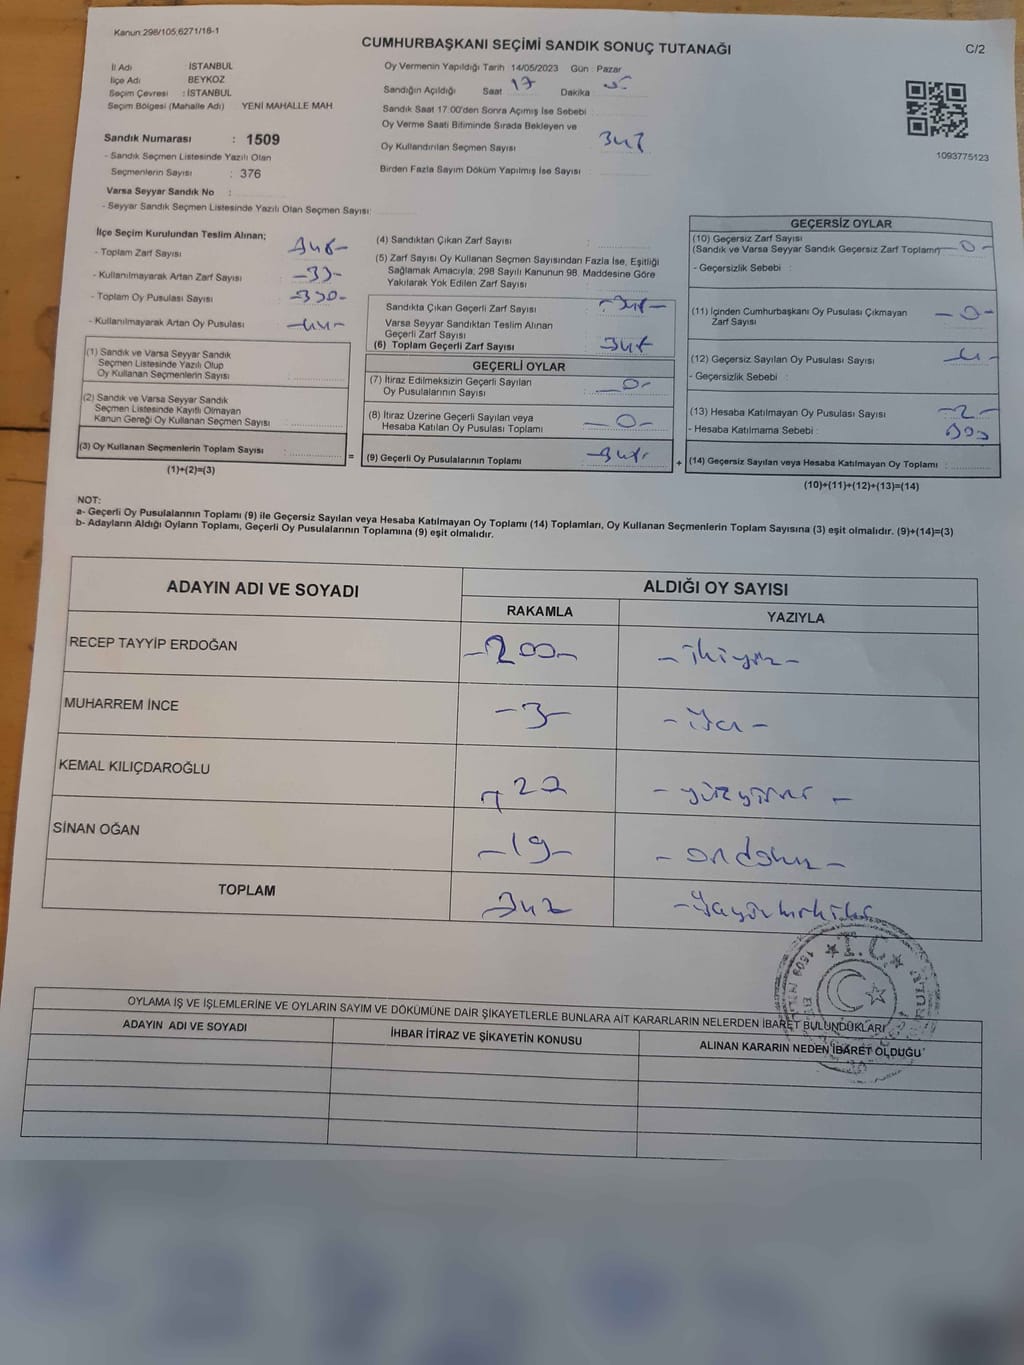 Kanun:298/105,6271/18-1
CUMHURBAŞKANI SEÇİMİ SANDIK SONUÇ TUTANAĞI
C/2
İl Adı İSTANBUL
İlçe Adı BEYKOZ
Seçim Çevresi : İSTANBUL
Seçim Bölgesi (Mahalle Adı) YENİ MAHALLE MAH
Sandık Numarası : 1509
- Sandık Seçmen Listesinde Yazılı Olan
Seçmenlerin Sayısı : 376
Varsa Seyyar Sandık No :
- Seyyar Sandık Seçmen Listesinde Yazılı Olan Seçmen Sayısı:
Oy Vermenin Yapıldığı Tarih :14/05/2023 Gün : Pazar
Sandığın Açıldığı Saat 17 Dakika
Sandık Saat 17:00'den Sonra Açımış İse Sebebi :
Oy Verme Saati Bitiminde Sırada Bekleyen ve
Oy Kullandırılan Seçmen Sayısı
Birden Fazla Sayım Döküm Yapılmış İse Sayısı :
1093775123
İlçe Seçim Kurulundan Teslim Alınan;
- Toplam Zarf Sayısı
- Kullanılmayarak Artan Zarf Sayısı -33-
- Toplam Oy Pusulası Sayısı
- Kullanılmayarak Artan Oy Pusulası
(1) Sandık ve Varsa Seyyar Sandık
Seçmen Listesinde Yazılı Olup
Oy Kullanan Seçmenlerin Sayısı :
(2) Sandık ve Varsa Seyyar Sandık
Seçmen Listesinde Kayıtlı Olmayan
Kanun Gereği Oy Kullanan Seçmen Sayısı :
(3) Oy Kullanan Seçmenlerin Toplam Sayısı :
(1)+(2)=(3)
=
(4) Sandıktan Çıkan Zarf Sayısı :
(5) Zarf Sayısı Oy Kullanan Seçmen Sayısından Fazla İse, Eşitliği
Sağlamak Amacıyla, 298 Sayılı Kanunun 98. Maddesine Göre
Yakılarak Yok Edilen Zarf Sayısı :
Sandıkta Çıkan Geçerli Zarf Sayısı
Varsa Seyyar Sandıktan Teslim Alınan
Geçerli Zarf Sayısı
(6) Toplam Geçerli Zarf Sayısı
GEÇERLİ OYLAR
(7) İtiraz Edilmeksizin Geçerli Sayılan
Oy Pusulalarının Sayısı -0-
(8) İtiraz Üzerine Geçerli Sayılan veya
Hesaba Katılan Oy Pusulası Toplamı -0-
(9) Geçerli Oy Pusulalarının Toplamı
+
GEÇERSİZ OYLAR
(10) Geçersiz Zarf Sayısı
(Sandık ve Varsa Seyyar Sandık Geçersiz Zarf Toplamı) -0-
- Geçersizlik Sebebi :
(11) İçinden Cumhurbaşkanı Oy Pusulası Çıkmayan
Zarf Sayısı -0-
(12) Geçersiz Sayılan Oy Pusulası Sayısı
- Geçersizlik Sebebi :
(13) Hesaba Katılmayan Oy Pusulası Sayısı -2-
- Hesaba Katılmama Sebebi :
(14) Geçersiz Sayılan veya Hesaba Katılmayan Oy Toplamı :
(10)+(11)+(12)+(13)=(14)
NOT:
a- Geçerli Oy Pusulalarının Toplamı (9) ile Geçersiz Sayılan veya Hesaba Katılmayan Oy Toplamı (14) Toplamları, Oy Kullanan Seçmenlerin Toplam Sayısına (3) eşit olmalıdır. (9)+(14)=(3)
b- Adayların Aldığı Oyların Toplamı, Geçerli Oy Pusulalarının Toplamına (9) eşit olmalıdır.
ADAYIN ADI VE SOYADI ALDIĞI OY SAYISI
RAKAMLA YAZIYLA
RECEP TAYYİP ERDOĞAN -200- -ikiyüz-
MUHARREM İNCE -3-
KEMAL KILIÇDAROĞLU
SİNAN OĞAN -19- -ondokuz-
TOPLAM 342
T.C.
1509
OYLAMA İŞ VE İŞLEMLERİNE VE OYLARIN SAYIM VE DÖKÜMÜNE DAİR ŞİKAYETLERLE BUNLARA AİT KARARLARIN NELERDEN İBARET BULUNDUKLARI
ADAYIN ADI VE SOYADI İHBAR İTİRAZ VE ŞİKAYETİN KONUSU ALINAN KARARIN NEDEN İBARET OLDUĞU